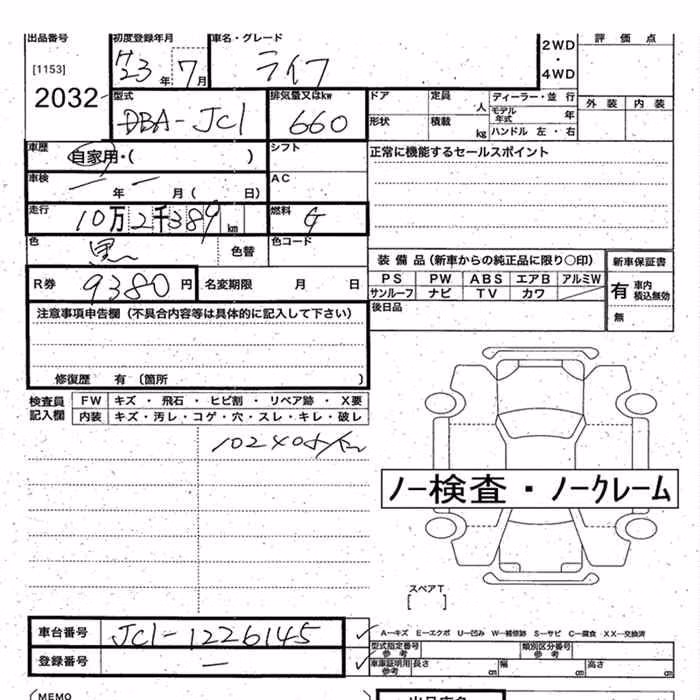 出品番号 初度登録年月 車名・グレード 2WD・4WD 評価点
[1153] H23年7月 ライフ
2032 型式 排気量又はkw ドア 定員 人 ディーラー・並行 外装 内装
DBA-JC1 660 形状 積載 kg モデル年式 年
ハンドル 左・右
車歴 自家用・( ) シフト 正常に機能するセールスポイント
車検 ー年ー月( 日) AC
走行 10万2千389km 燃料 G
色 黒 色替 色コード
装備品(新車からの純正品に限り○印) 新車保証書
R券 9380円 名変期限 月 日 PS PW ABS エアB アルミW 有 車内積込無効
サンルーフ ナビ TV カワ
注意事項申告欄(不具合内容等は具体的に記入して下さい) 後日品 無
修復歴 有(箇所 )
検査員記入欄 FW キズ・飛石・ヒビ割・リペア跡・X要
内装 キズ・汚レ・コゲ・穴・スレ・キレ・破レ
ノー検査・ノークレーム
スペアT
[ ]
車台番号 JC1-1226145 A―キズ E―エクボ U―凹み W―補修跡 S―サビ C―腐食 XX―交換済
型式指定番号 参考 類別区分番号 参考
登録番号 ー 車庫証明用 参考 長さ cm 幅 cm 高さ cm
(MEMO 出品店名